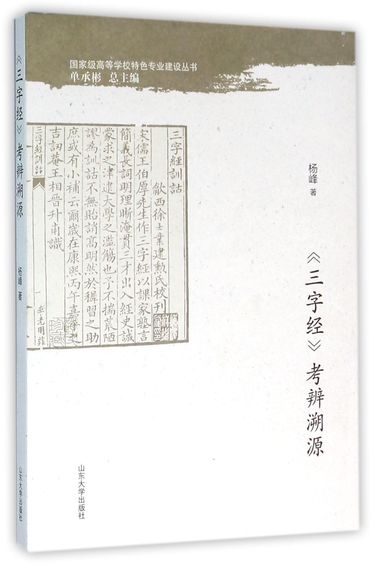 国家级高等学校特色专业建设丛书
单承彬 总主编
杨峰 著
《三字经》考辨溯源
山东大学出版社
三字经訓詁
歙西徐士業建勲氏校刊
宋儒王伯厚先生作三字經以課家塾言
簡義長詞明理晰淹貫三才出入經史誠
蒙求之津逮大學之濫觴也予不揣荒陋
謬為訓詁不無貽誚高明然於稗習之助
庶或有小補云爾歲在康熙丙午嘉平之
吉訒菴王相晉升甫識
三字經訓詁
《三字经》考辨溯源
杨峰 著
山东大学出版社